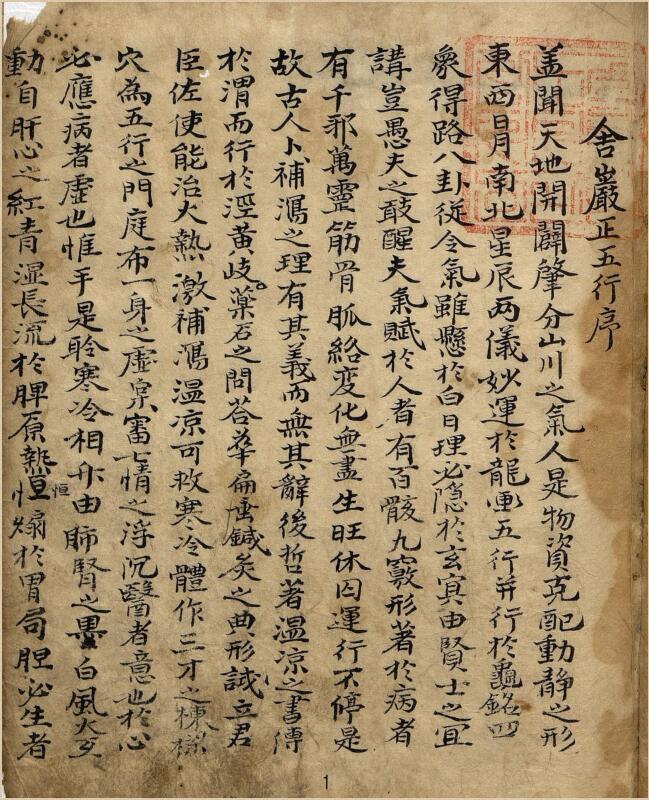 舍巖正五行序
盖聞天地開闢肇分山川之氣人是物資克配動静之形
東西日月南北星辰两儀妙運於龍圖五行并行於龜銘四
象得路八卦従令氣雖懸於白日理必隐於玄冥由賢士之宜
講豈愚夫之敢醒夫氣賦於人者有百骸九竅形著於病者
有千邪萬靈筋骨脈絡変化無盡生旺休囚運行不停是
故古人卜補瀉之理有其義而無其辭後哲著温凉之書傳
於渭而行於涇黄歧藥石之問荅華扁鍼灸之典形誠立君
臣佐使能治大熱激補瀉温凉可救寒冷體作三才之棟樑
穴為五行之門庭布一身之虚宲審七情之浮沉醫者意也於心
必應病者虚也惟手是聆寒冷相升由肺腎之黒白風火交
動自肝心之紅青湿長流於脾原熱恒恒燏於胃局胆必生者
1